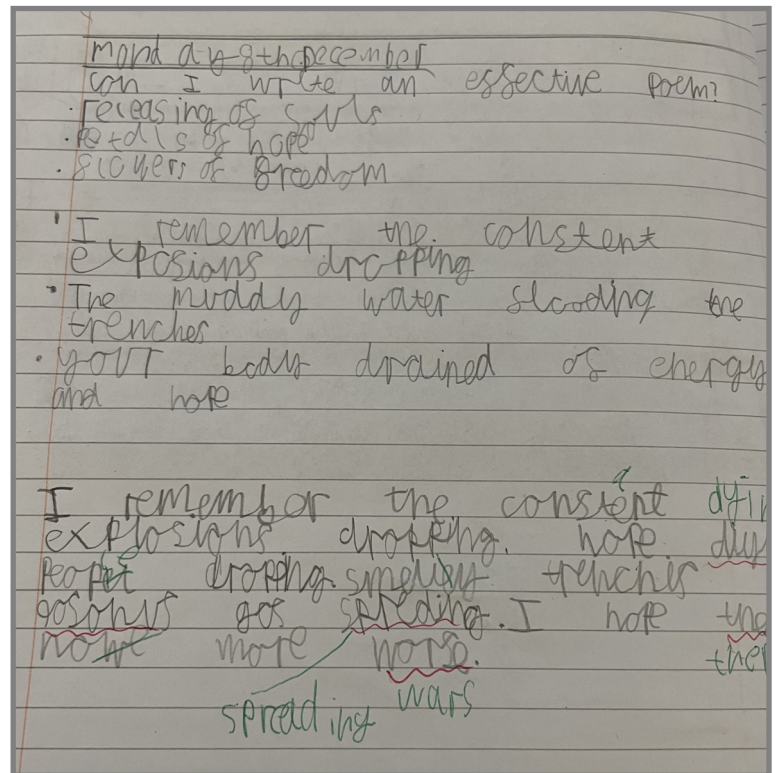 monday 8th december
can I write an effective poem?
· releasing of souls
· petals of hope
· flowers of freedom
· I remember the constent
explosians dropping
· The muddy water flooding the
trenches
· your body drained of energy
and hope
a
I remember the constent dyin
explosions dropping. hope diy
People dropping. smelly trenchis
gosonus gas spreding. I hope the
more worse. ther
spreading wars